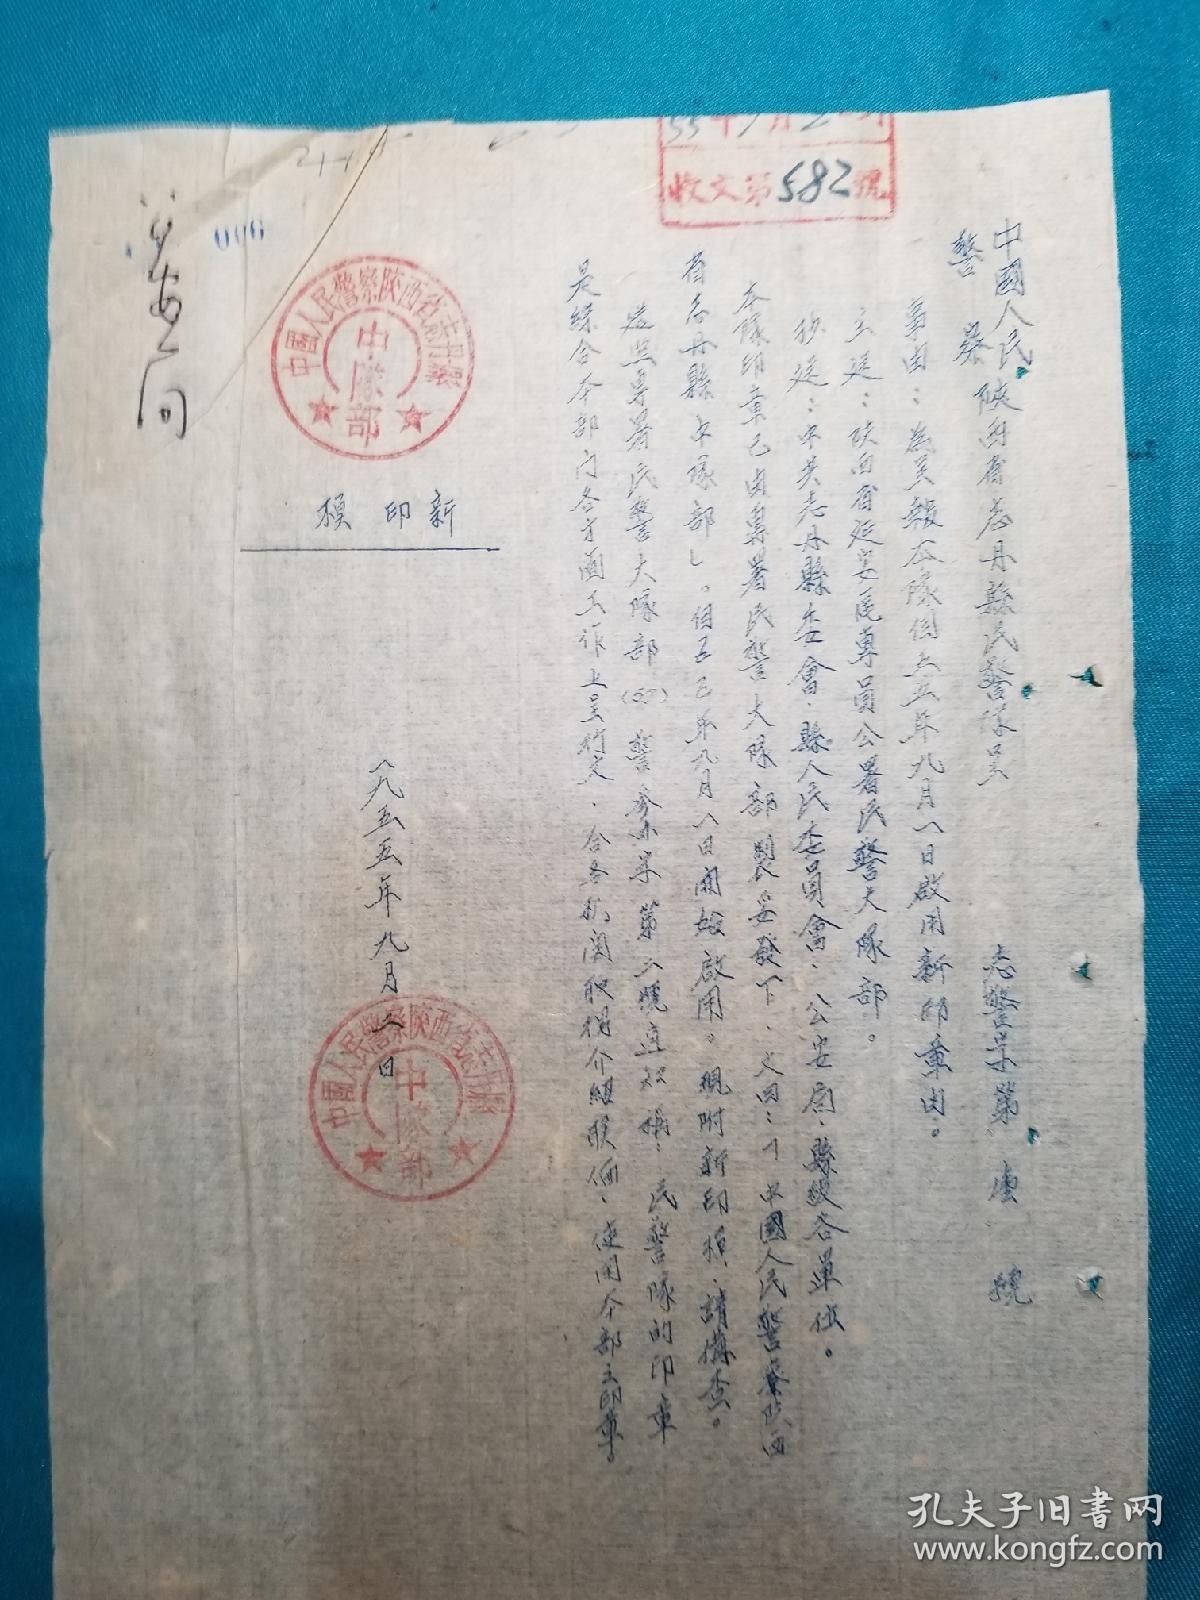 55年9月2日
收文第582號
中國人民
警察
陝西省志丹縣民警隊呈
志警呈第 壹 號
事由：為呈報本隊自五五年九月八日啟用新印章由。
主送：陝西省延安區專員公署民警大隊部。
抄送：中共志丹縣委會、縣人民委員會、公安局、縣級各單位。
本隊印章已由專署民警大隊部製妥發下，文曰：「中國人民警察陝西
省志丹縣中隊部」。自五五年九月八日開始啟用。現附新印模，請備查。
遵照專署民警大隊部(55)警參字第二號通知稱：民警隊的印章
是綜合本部內各方面工作上呈行文，合各機關聯系介紹
使用本部之印章。
新印模
中國人民警察陝西省志丹縣
中隊部
一九五五年九月 日
中國人民警察陝西省志丹縣
中隊部
006
孔夫子旧书网
www.kongfz.com